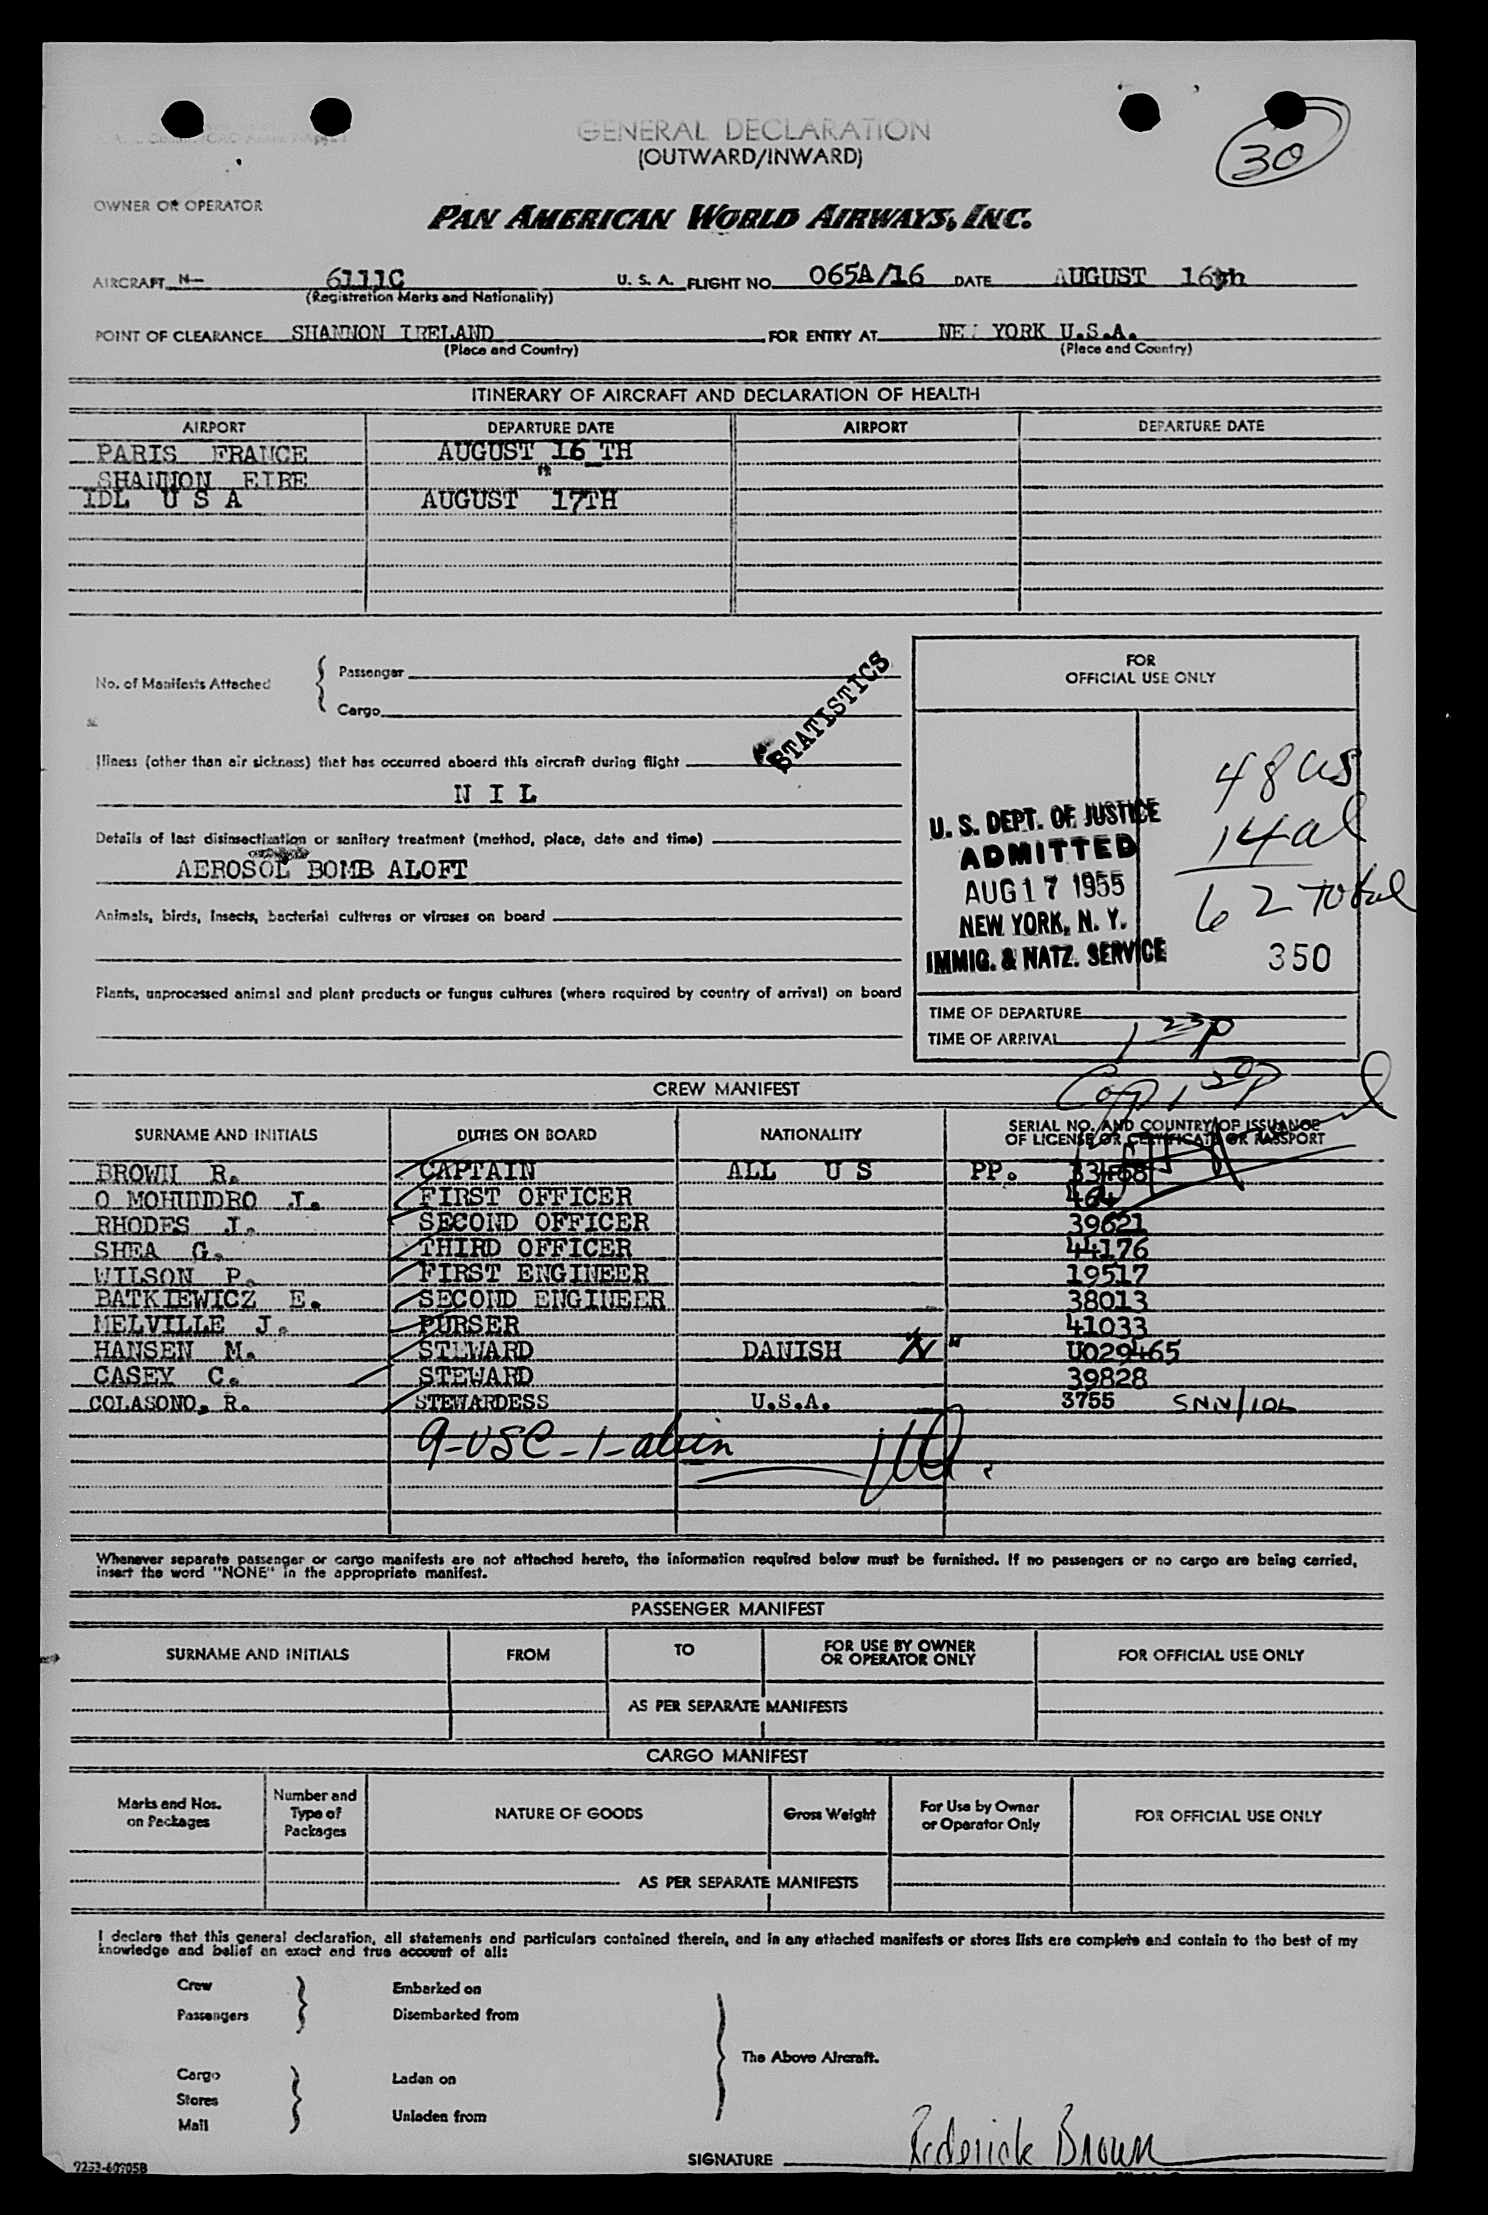 GENERAL DECLARATION
(OUTWARD/INWARD)
30
OWNER OR OPERATOR
PAN AMERICAN WORLD AIRWAYS, INC.
AIRCRAFT N- 6111C U. S. A. FLIGHT NO. 065A/16 DATE AUGUST 16th
(Registration Marks and Nationality)
POINT OF CLEARANCE SHANNON IRELAND FOR ENTRY AT NEW YORK U.S.A.
(Place and Country) (Place and Country)
ITINERARY OF AIRCRAFT AND DECLARATION OF HEALTH
AIRPORT DEPARTURE DATE AIRPORT DEPARTURE DATE
PARIS FRANCE AUGUST 16 TH
SHANNON EIRE "
IDL U S A AUGUST 17TH
No. of Manifests Attached { Passenger
Cargo
STATISTICS
Illness (other than air sickness) that has occurred aboard this aircraft during flight
N I L
Details of last disinsectization or sanitary treatment (method, place, date and time)
AEROSOL BOMB ALOFT
Animals, birds, insects, bacterial cultures or viruses on board
Plants, unprocessed animal and plant products or fungus cultures (where required by country of arrival) on board
FOR
OFFICIAL USE ONLY
U. S. DEPT. OF JUSTICE
ADMITTED
AUG 17 1955
NEW YORK, N. Y.
IMMIG. & NATZ. SERVICE
48 us
14 al
62 Total
350
TIME OF DEPARTURE
TIME OF ARRIVAL 1 23 p
CREW MANIFEST
SURNAME AND INITIALS DUTIES ON BOARD NATIONALITY SERIAL NO. AND COUNTRY OF ISSUANCE
OF LICENSE OR CERTIFICATE OR PASSPORT
BROWN R. CAPTAIN ALL U S PP.
O MOHUNDRO J. FIRST OFFICER 464
RHODES J. SECOND OFFICER 39621
SHEA G. THIRD OFFICER 44176
WILSON P. FIRST ENGINEER 19517
BATKIEWICZ E. SECOND ENGINEER 38013
MELVILLE J. PURSER 41033
HANSEN M. STEWARD DANISH " U029465
CASEY C. STEWARD 39828
COLASONO, R. STEWARDESS U.S.A. 3755 SNN/IDL
9-USC-1-alien
Whenever separate passenger or cargo manifests are not attached hereto, the information required below must be furnished. If no passengers or no cargo are being carried,
insert the word "NONE" in the appropriate manifest.
PASSENGER MANIFEST
SURNAME AND INITIALS FROM TO FOR USE BY OWNER OR OPERATOR ONLY FOR OFFICIAL USE ONLY
AS PER SEPARATE MANIFESTS
CARGO MANIFEST
Marks and Nos. on Packages Number and Type of Packages NATURE OF GOODS Gross Weight For Use by Owner or Operator Only FOR OFFICIAL USE ONLY
AS PER SEPARATE MANIFESTS
I declare that this general declaration, all statements and particulars contained therein, and in any attached manifests or stores lists are complete and contain to the best of my
knowledge and belief an exact and true account of all:
Crew Embarked on
Passengers Disembarked from
The Above Aircraft.
Cargo Laden on
Stores
Mail Unladen from
SIGNATURE Roderick Brown
9253-60905B